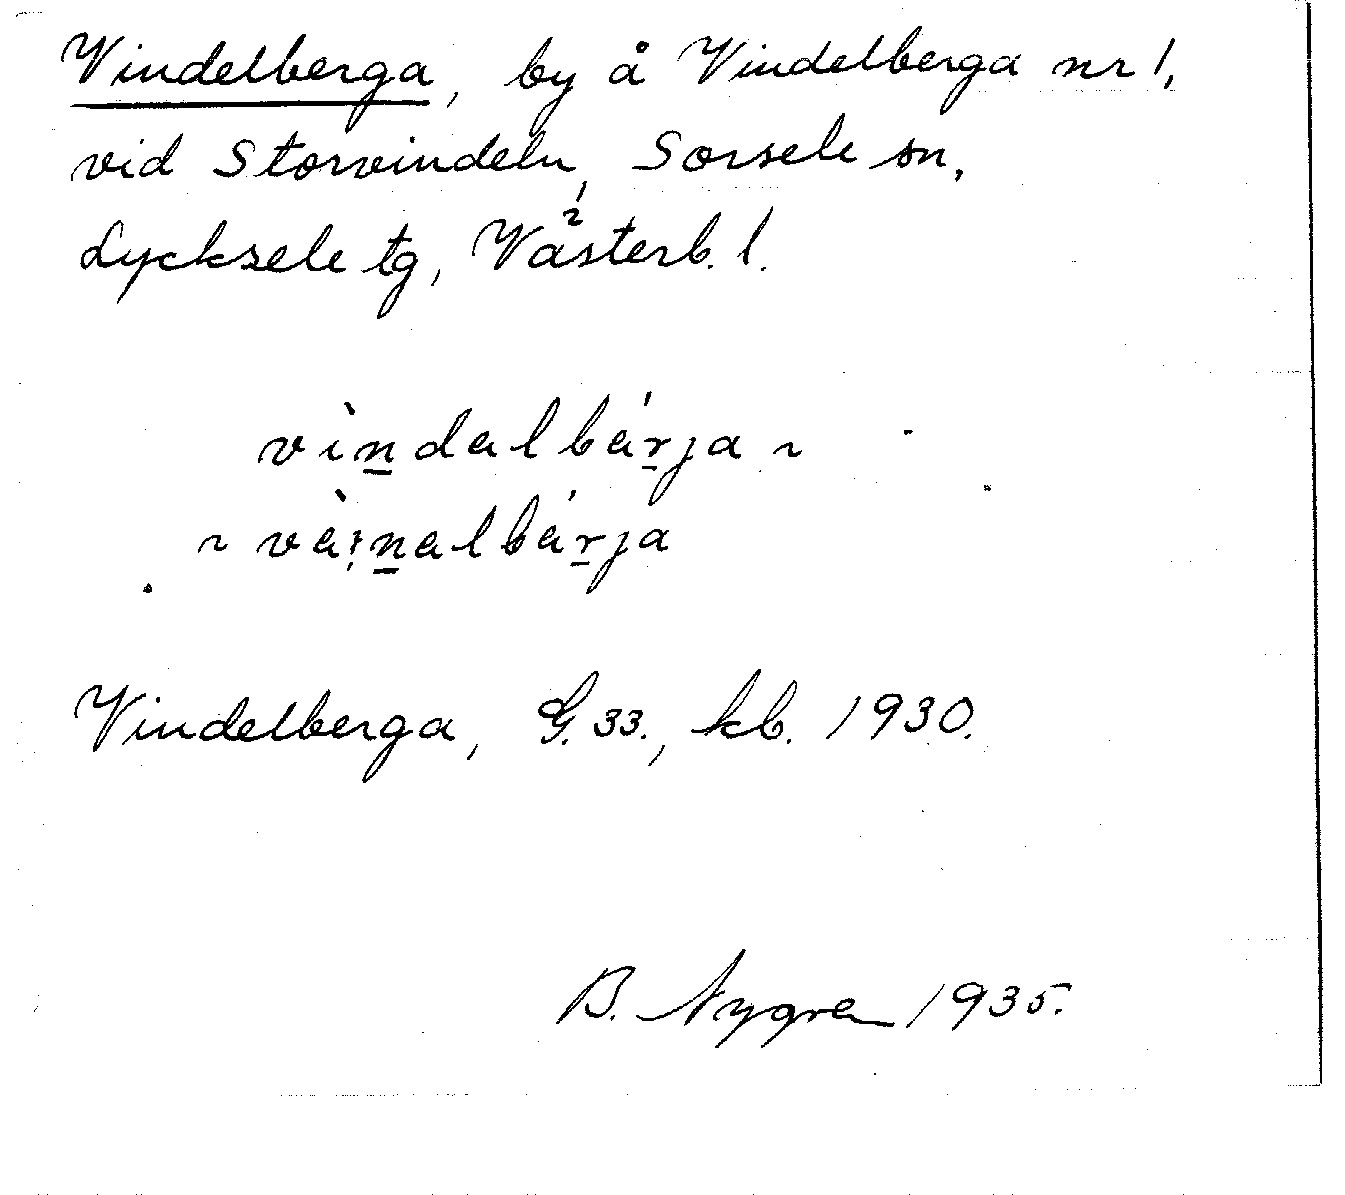 Vindelberga, by å Vindelberga nr 1,
vid Storvindeln, Sorsele sn,
Lycksele tg, Västerb. l.
vìndalbárja ~
~ vàı̣nalbárja
Vindelberga, G. 33., kb. 1930.
B. Nygren 1935.